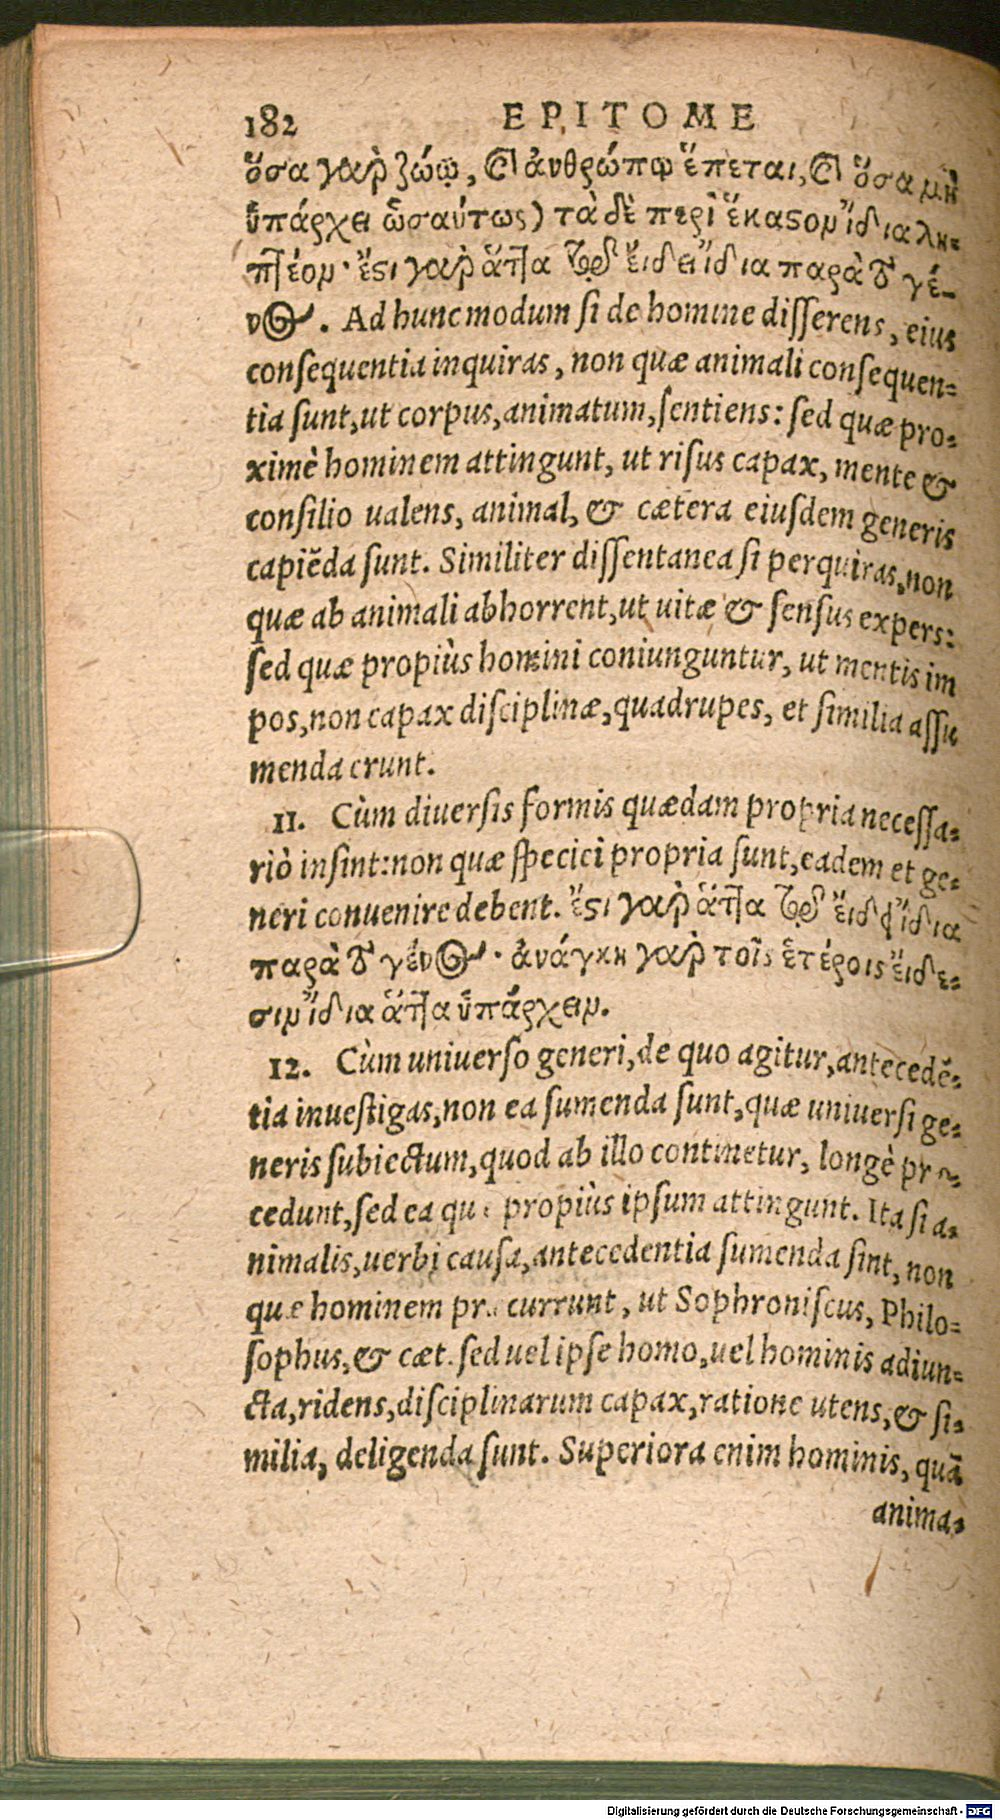 182 EPITOME
ὅσα γαρ̀ ζώῳ, καὶ ἀνθρώπῳ ἕπεται, καὶ ὅσα μὴ
ὑπάρχει ὡσαύτως) τὰ δὲ περὶ ἕκαστον ἴδια λη-
πτέον· ἔστι γαρ̀ ἄττα τῷ εἴδει ἴδια παρὰ τὸ γέ-
νος. Ad hunc modum si de homine disserens, eius
consequentia inquiras, non quæ animali consequen-
tia sunt, ut corpus, animatum, sentiens: sed quæ pro-
ximè hominem attingunt, ut risus capax, mente &
consilio ualens, animal, & cætera eiusdem generis
capiẽda sunt. Similiter dissentanea si perquiras, non
quæ ab animali abhorrent, ut uitæ & sensus expers:
sed quæ propiùs homini coniunguntur, ut mentis im
pos, non capax disciplinæ, quadrupes, et similia assu
menda erunt.
11. Cùm diuersis formis quædam propria necessa-
riò insint: non quæ speciei propria sunt, eadem et ge-
neri conuenire debent. ἔστι γαρ̀ ἄττα τῷ εἴδει ἴδια
παρὰ τὸ γένος· ἀνάγκη γαρ̀ τοῖς ἑτέροις εἴδε-
σιν ἴδια ἄττα ὑπάρχειν.
12. Cùm uniuerso generi, de quo agitur, antecedẽ-
tia inuestigas, non ea sumenda sunt, quæ uniuersi ge-
neris subiectum, quod ab illo continetur, longè præ-
cedunt, sed ea quæ propiùs ipsum attingunt. Ita si a-
nimalis, uerbi causa, antecedentia sumenda sint, non
quæ hominem præcurrunt, ut Sophroniscus, Philo-
sophus, & cæt. sed uel ipse homo, uel hominis adiun-
cta, ridens, disciplinarum capax, ratione utens, & si-
milia, deligenda sunt. Superiora enim hominis, quã
anima-
Digitalisierung gefördert durch die Deutsche Forschungsgemeinschaft - DFG